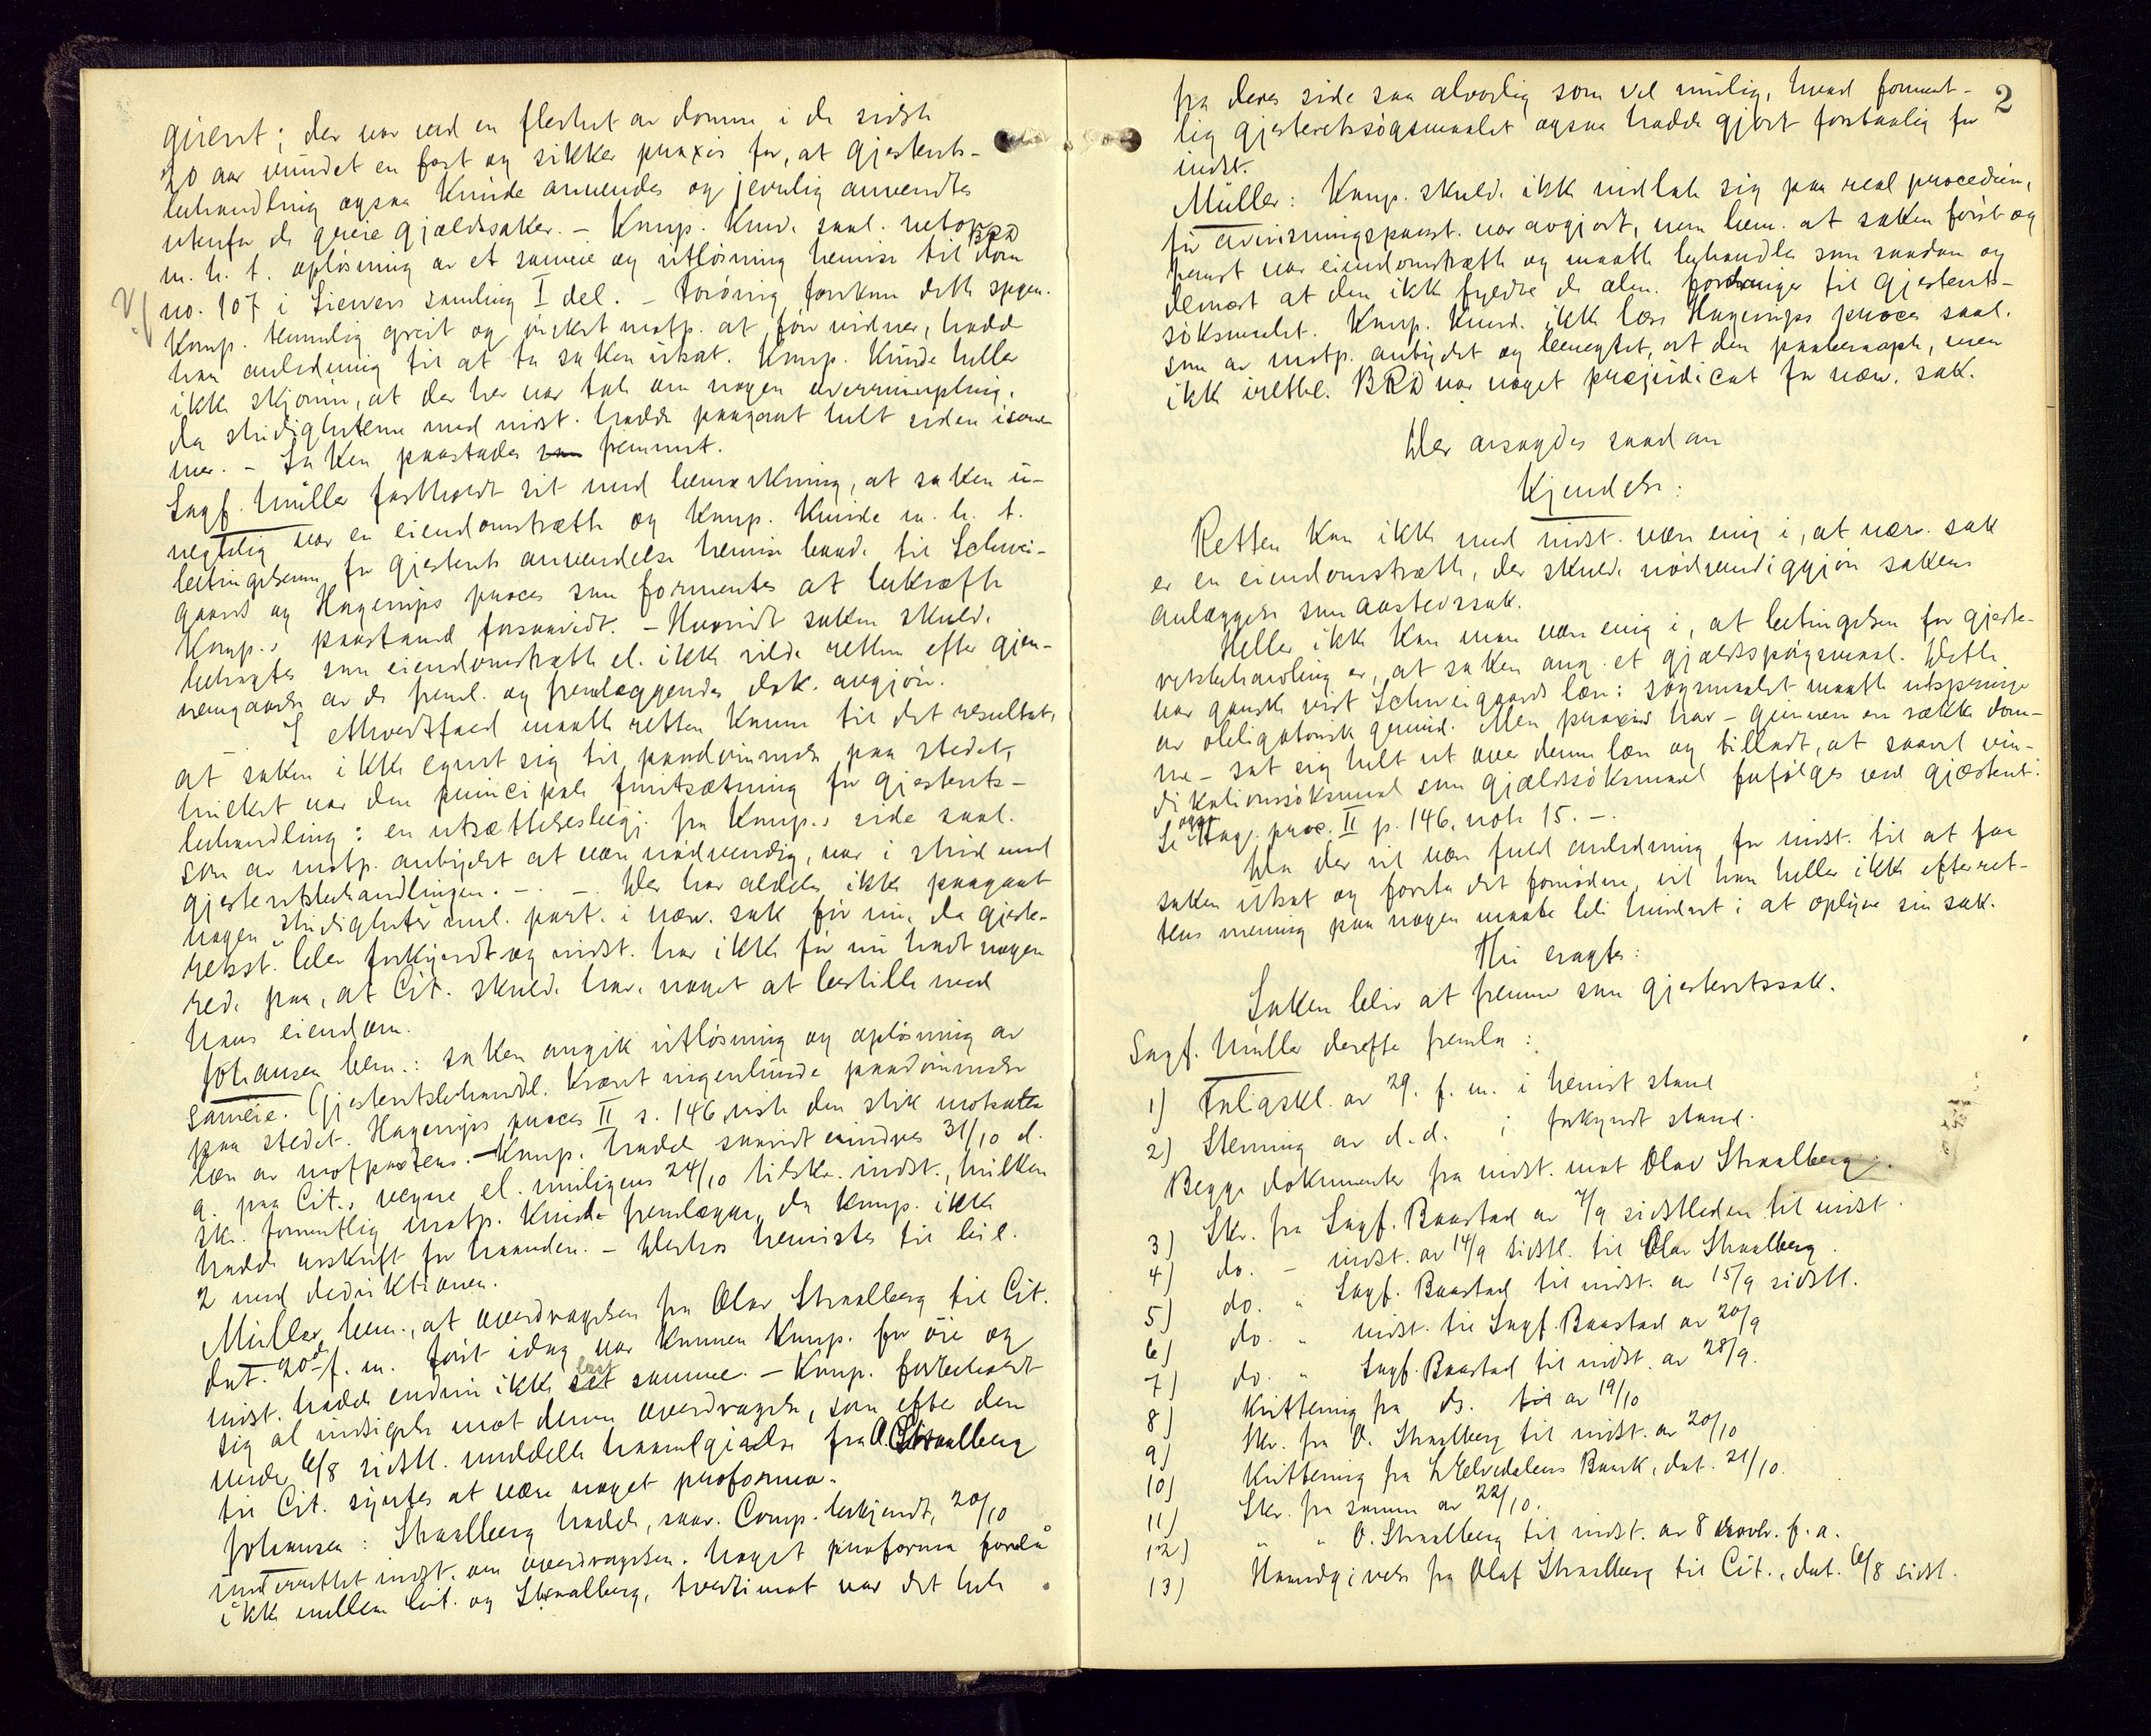 gjesteret; der var ved en flerhet av domme i de sidste
20 aar vundet en fast og sikker praxis for, at gjesterets-
behandling ogsaa kunde anvendes og jevnlig anvendtes
utenfor de greie gjældssaker. - Komp. kunde saal. netop
m. h. t. opløsning av et sameie og utløsning henvise til BRD dom
no. 107 i Sievers samling I del. - Forøvrig forekom dette spgm.
Komp. temmelig greit og ønsket motp. at føre vidner, hadde
han anledning til at ta saken utsat. Komp. kunde heller
ikke skjønne, at der her var tale om nogen overrumpling,
da stridighetene med indst. hadde paagaat helt siden isom-
mer. - Saken paastodes fremmet.
Sagf. Müller fastholdt sit med bemerkning, at saken u-
negtelig var en eiendomstrætte og Komp. kunde m. h. t.
betingelserne for gjesterets anvendelse henvise baade til Schwei-
gaard og Hagerups proces som formentes at bekræfte
Komp.s paastand forsaavidt. - Hvorvidt saken skulde
betragtes som eiendomstrætte el. ikke vilde retten efter gjen-
nemgaaelse av de freml. og fremlæggendes dok. avgjøre.
I ethvertfald maatte retten komme til det resultat,
at saken ikke egnet sig til paadømmelse paa stedet,
hvilket var den principale forutsætning for gjesterets-
behandling: en utsættelsesbegj. fra Komp.s side saal.
som av motp. antydet at være nødvendig, var i strid med
gjesteretsbehandlingen. - . - . Der har aldeles ikke paagaat
nogen stridigheter mel. part. i nærv. sak før nu, da gjeste-
retsst. blev forkyndt og indst. har ikke før nu hadt nogen
rede paa, at Cit. skulde have noget at bestille med
hans eiendom.
Johansen bem.: saken angik utløsning og opløsning av
sameie. Gjesteretsbehandl. krævet ingenlunde paadømmelse
paa stedet. Hagerups proces II s. 146 viste den stik motsatte
lære av motpartens. - Komp. hadde saavidt erindres 31/10 d.
a. paa Cit.s vegne el. muligens 24/10 tilskr. indst., hvilken
skr. formentlig motp. kunde fremlægge, da Komp. ikke
hadde avskrift for haanden. - Derhos henvistes til bil.
2 med deduktionen.
Müller bem., at overdragelsen fra Olav Straalberg til Cit.
dat. 20de f. m. først idag var kommen Komp. for øie og
indst. hadde endnu ikke set læst samme. - Komp. forbeholdt
sig al indsigelse mot denne overdragelse, som efter den
under 6/8 sidstl. meddelte haandgivelse fra O. Straalberg
til Cit. syntes at være noget proforma.
Johansen: Straalberg hadde, saav. Comp. bekjendt, 20/10
underrettet indst. om overdragelsen. Noget proforma forelå
ikke mellem Cit. og Straalberg, tvertimot var det hele
2
fra deres side saa alvorlig som vel mulig, hvad forment-
lig gjesteretssøgsmaalet ogsaa hadde gjort forstaalig for
indst.
Müller: Komp. skulde ikke indlate sig paa realproceduren,
før avvisningspaast. var avgjort, men bem. at saken først og
fremst var eiendomstrætte og maatte behandles som saadan og
dernæst at den ikke fyldte de alm. fordringer til gjesterets-
søksmaalet. Komp. kunde ikke læse Hagerups proces saal.
som av motp. antydet og benegtet, at den paaberaapte, men
ikke irettel. BRD var noget præjudicat for nærv. sak.
Der avsagdes saadan
Kjendelse:
Retten kan ikke med indst. være enig i, at nærv. sak
er en eiendomstrætte, der skulde nødvendiggjøre sakens
anlæggelse som aastedssak.
Heller ikke kan man være enig i, at betingelsen for gjeste-
retsbehandling er, at saken ang. et gjældsspøgsmaal. Dette
var ganske vist Schweigaards lære: søgsmaalet maatte utspringe
av obligatorisk grund. Men praxis har - gjennem en række dom-
me - sat sig helt ut over denne lære og tilladt, at saavel vin-
dikationssøksmaal som gjældssøksmaal forfølges ved gjesteret.
Se ogsaa Hag. proc. II p. 146, note 15. - .
Da der vil være fuld anledning for indst. til at faa
saken utsat og foreta det fornødne, vil han heller ikke efter ret-
tens mening paa nogen maate bli hindret i at oplyse sin sak.
Thi eragtes:
Saken blir at fremme som gjesteretssak.
Sagf. Müller derefter fremla:
1) Forligskl. av 29. f. m. i henvist stand
2) Stevning av d. d. i forkyndt stand.
Begge dokumenter fra indst. mot Olav Straalberg.
3) Skr. fra Sagf. Baastad av 7/9 sidstleden til indst.
4) do. - indst. av 14/9 sidstl. til Olav Straalberg.
5) do. " Sagf. Baastad til indst. av 15/9 sidstl.
6) do. " indst. til Sagf. Baastad av 20/9
7) do. " Sagf. Baastad til indst. av 28/9.
8) Kvittering fra ds. av 19/10
9) Skr. fra O. Straalberg til indst. av 20/10
10) Kvittering fra Elvedalens Bank, dat. 21/10.
11) Skr. fra samme av 22/10.
12) " " O. Straalberg til indst. av 8 novbr. f. a.
13) Haandgivelse fra Olaf Straalberg til Cit., dat. 6/8 sidstl.